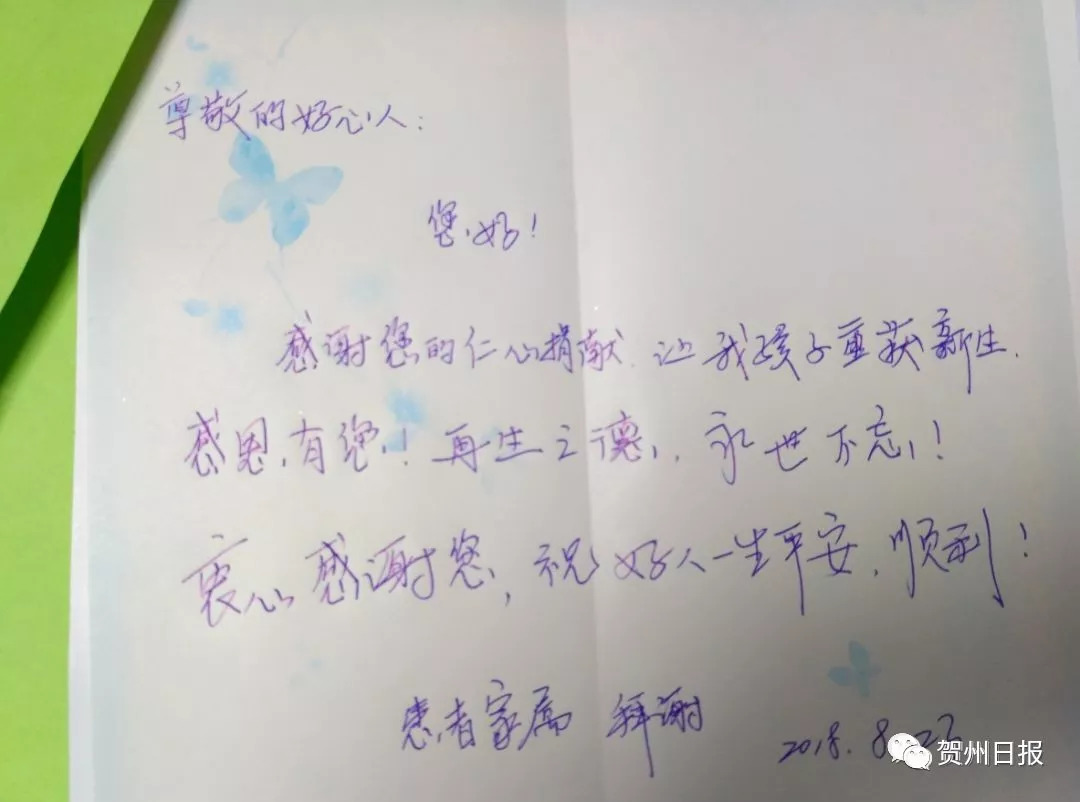 尊敬的好心人：
您好！
感谢您的仁心捐献.让我孩子重获新生.
感恩有您！再生之德，永世不忘！
衷心感谢您，祝好人一生平安.顺利！
患者家属 拜谢
2018.8.23
贺州日报